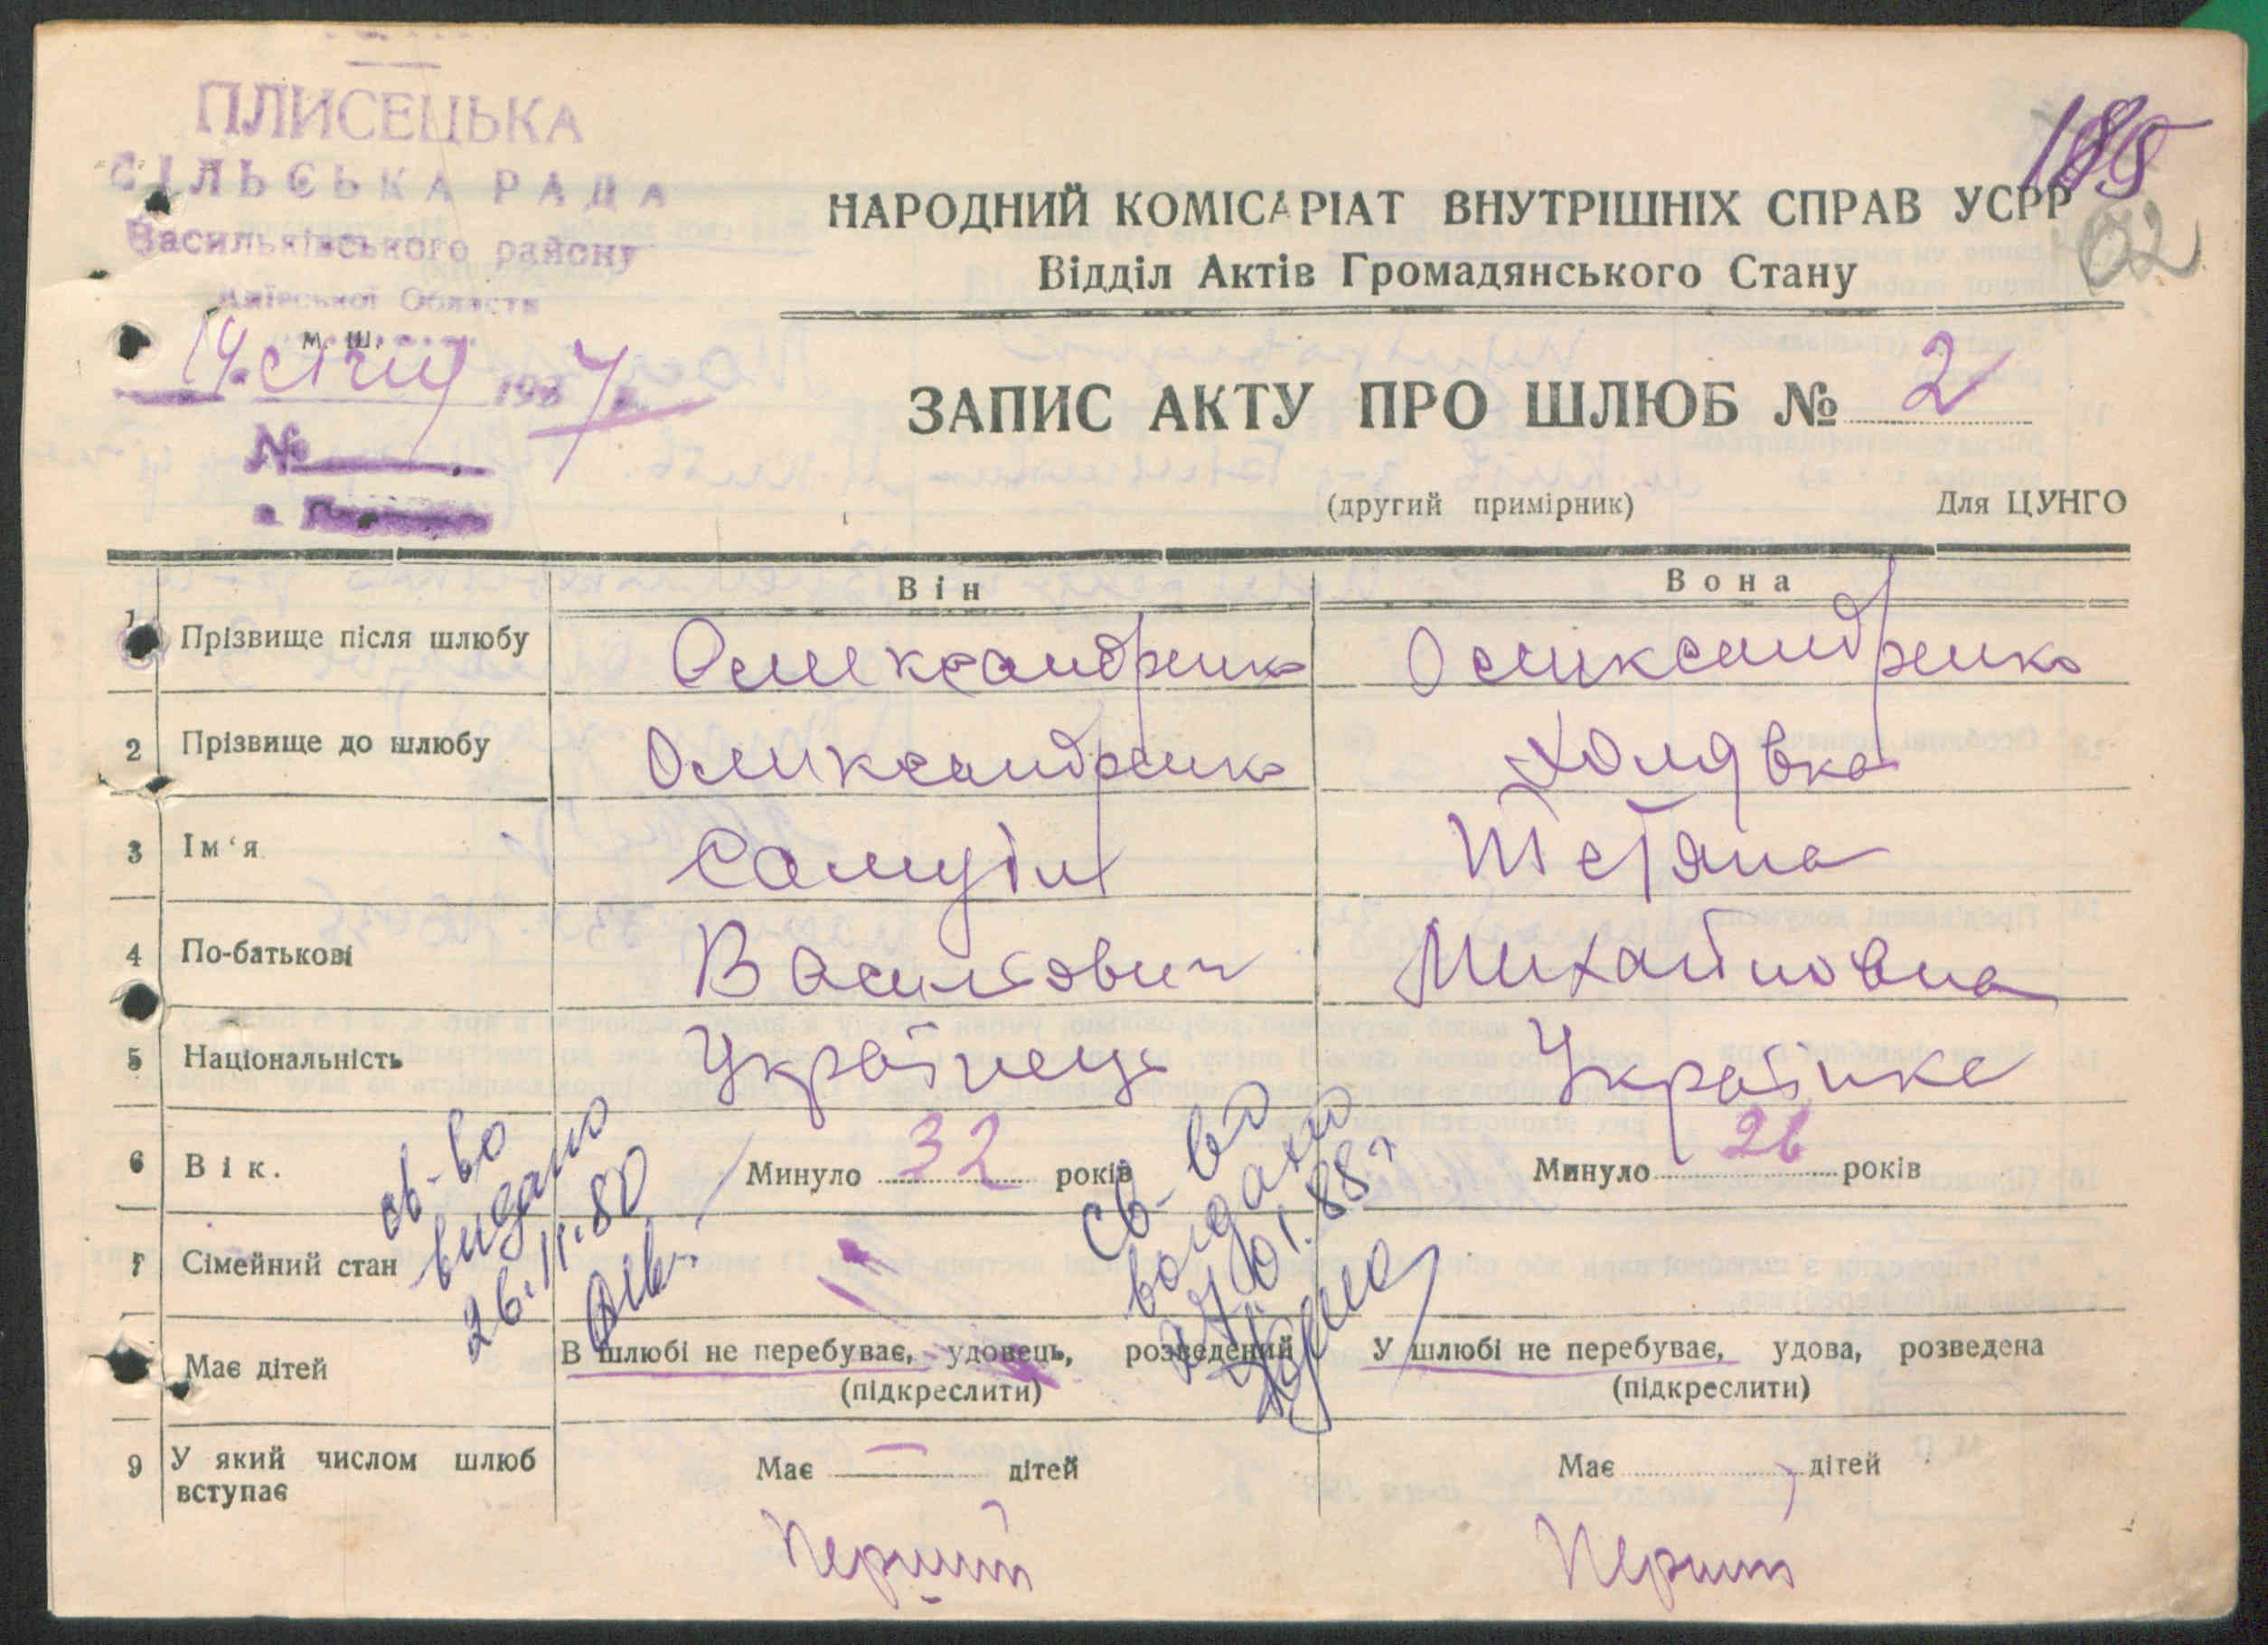 ПЛИСЕЦЬКА
СІЛЬСЬКА РАДА
Васильківського району
Київської Области
м. ш.
14 січня 1937
№
185
НАРОДНИЙ КОМІСАРІАТ ВНУТРІШНІХ СПРАВ УСРР
Відділ Актів Громадянського Стану
ЗАПИС АКТУ ПРО ШЛЮБ № 2
(другий примірник) Для ЦУНГО
Він Вона
1 Прізвище після шлюбу Олександренко Олександренко
2 Прізвище до шлюбу Олександренко Холявка
3 Ім'я Самуїл Тетяна
4 По-батькові Васильович Михайловна
5 Національність Українець Українка
6 Вік. Минуло 32 років Минуло 26 років
7 Сімейний стан
св-во
видано
26.11.80
св-во
выдано
01.88
Має дітей В шлюбі не перебуває, удовець, розведений У шлюбі не перебуває, удова, розведена
(підкреслити) (підкреслити)
9 У який числом шлюб вступає Має — дітей Має дітей
Перший Перший